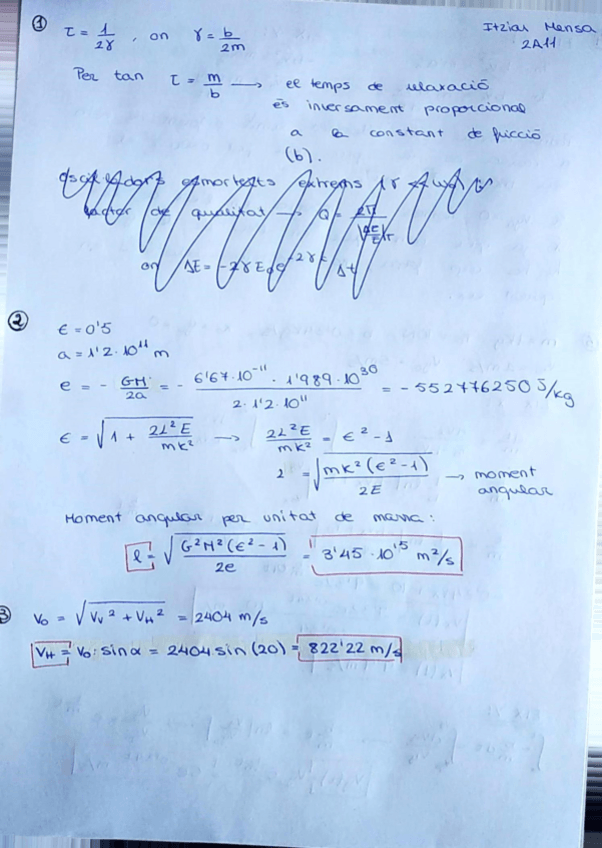 Itziar Mensa
2A11
① τ = 1/2γ, on γ = b/2m
Per tan τ = m/b → el temps de relaxació
és inversament proporcional
a la constant de fricció
(b).
factor de qualitat → Q = 2π/|ΔE/E|τ
on ΔE = -2γE₀e^-2γt Δt
②
ϵ = 0'5
a = 1'2·10¹¹ m
e = - GM/2a = - 6'67·10⁻¹¹ · 1'989·10³⁰ / 2·1'2·10¹¹ = -552776250 J/kg
ϵ = √(1 + 2L²E/mk²) → 2L²E/mk² = ϵ² - 1
L = √(mk²(ϵ²-1)/2E) → moment
angular
Moment angular per unitat de massa:
l = √(G²M²(ϵ²-1)/2e) = 3'45·10¹⁵ m²/s
③ V₀ = √(Vv² + VH²) = 2404 m/s
VH = V₀·sinα = 2404 sin(20) = 822'22 m/s